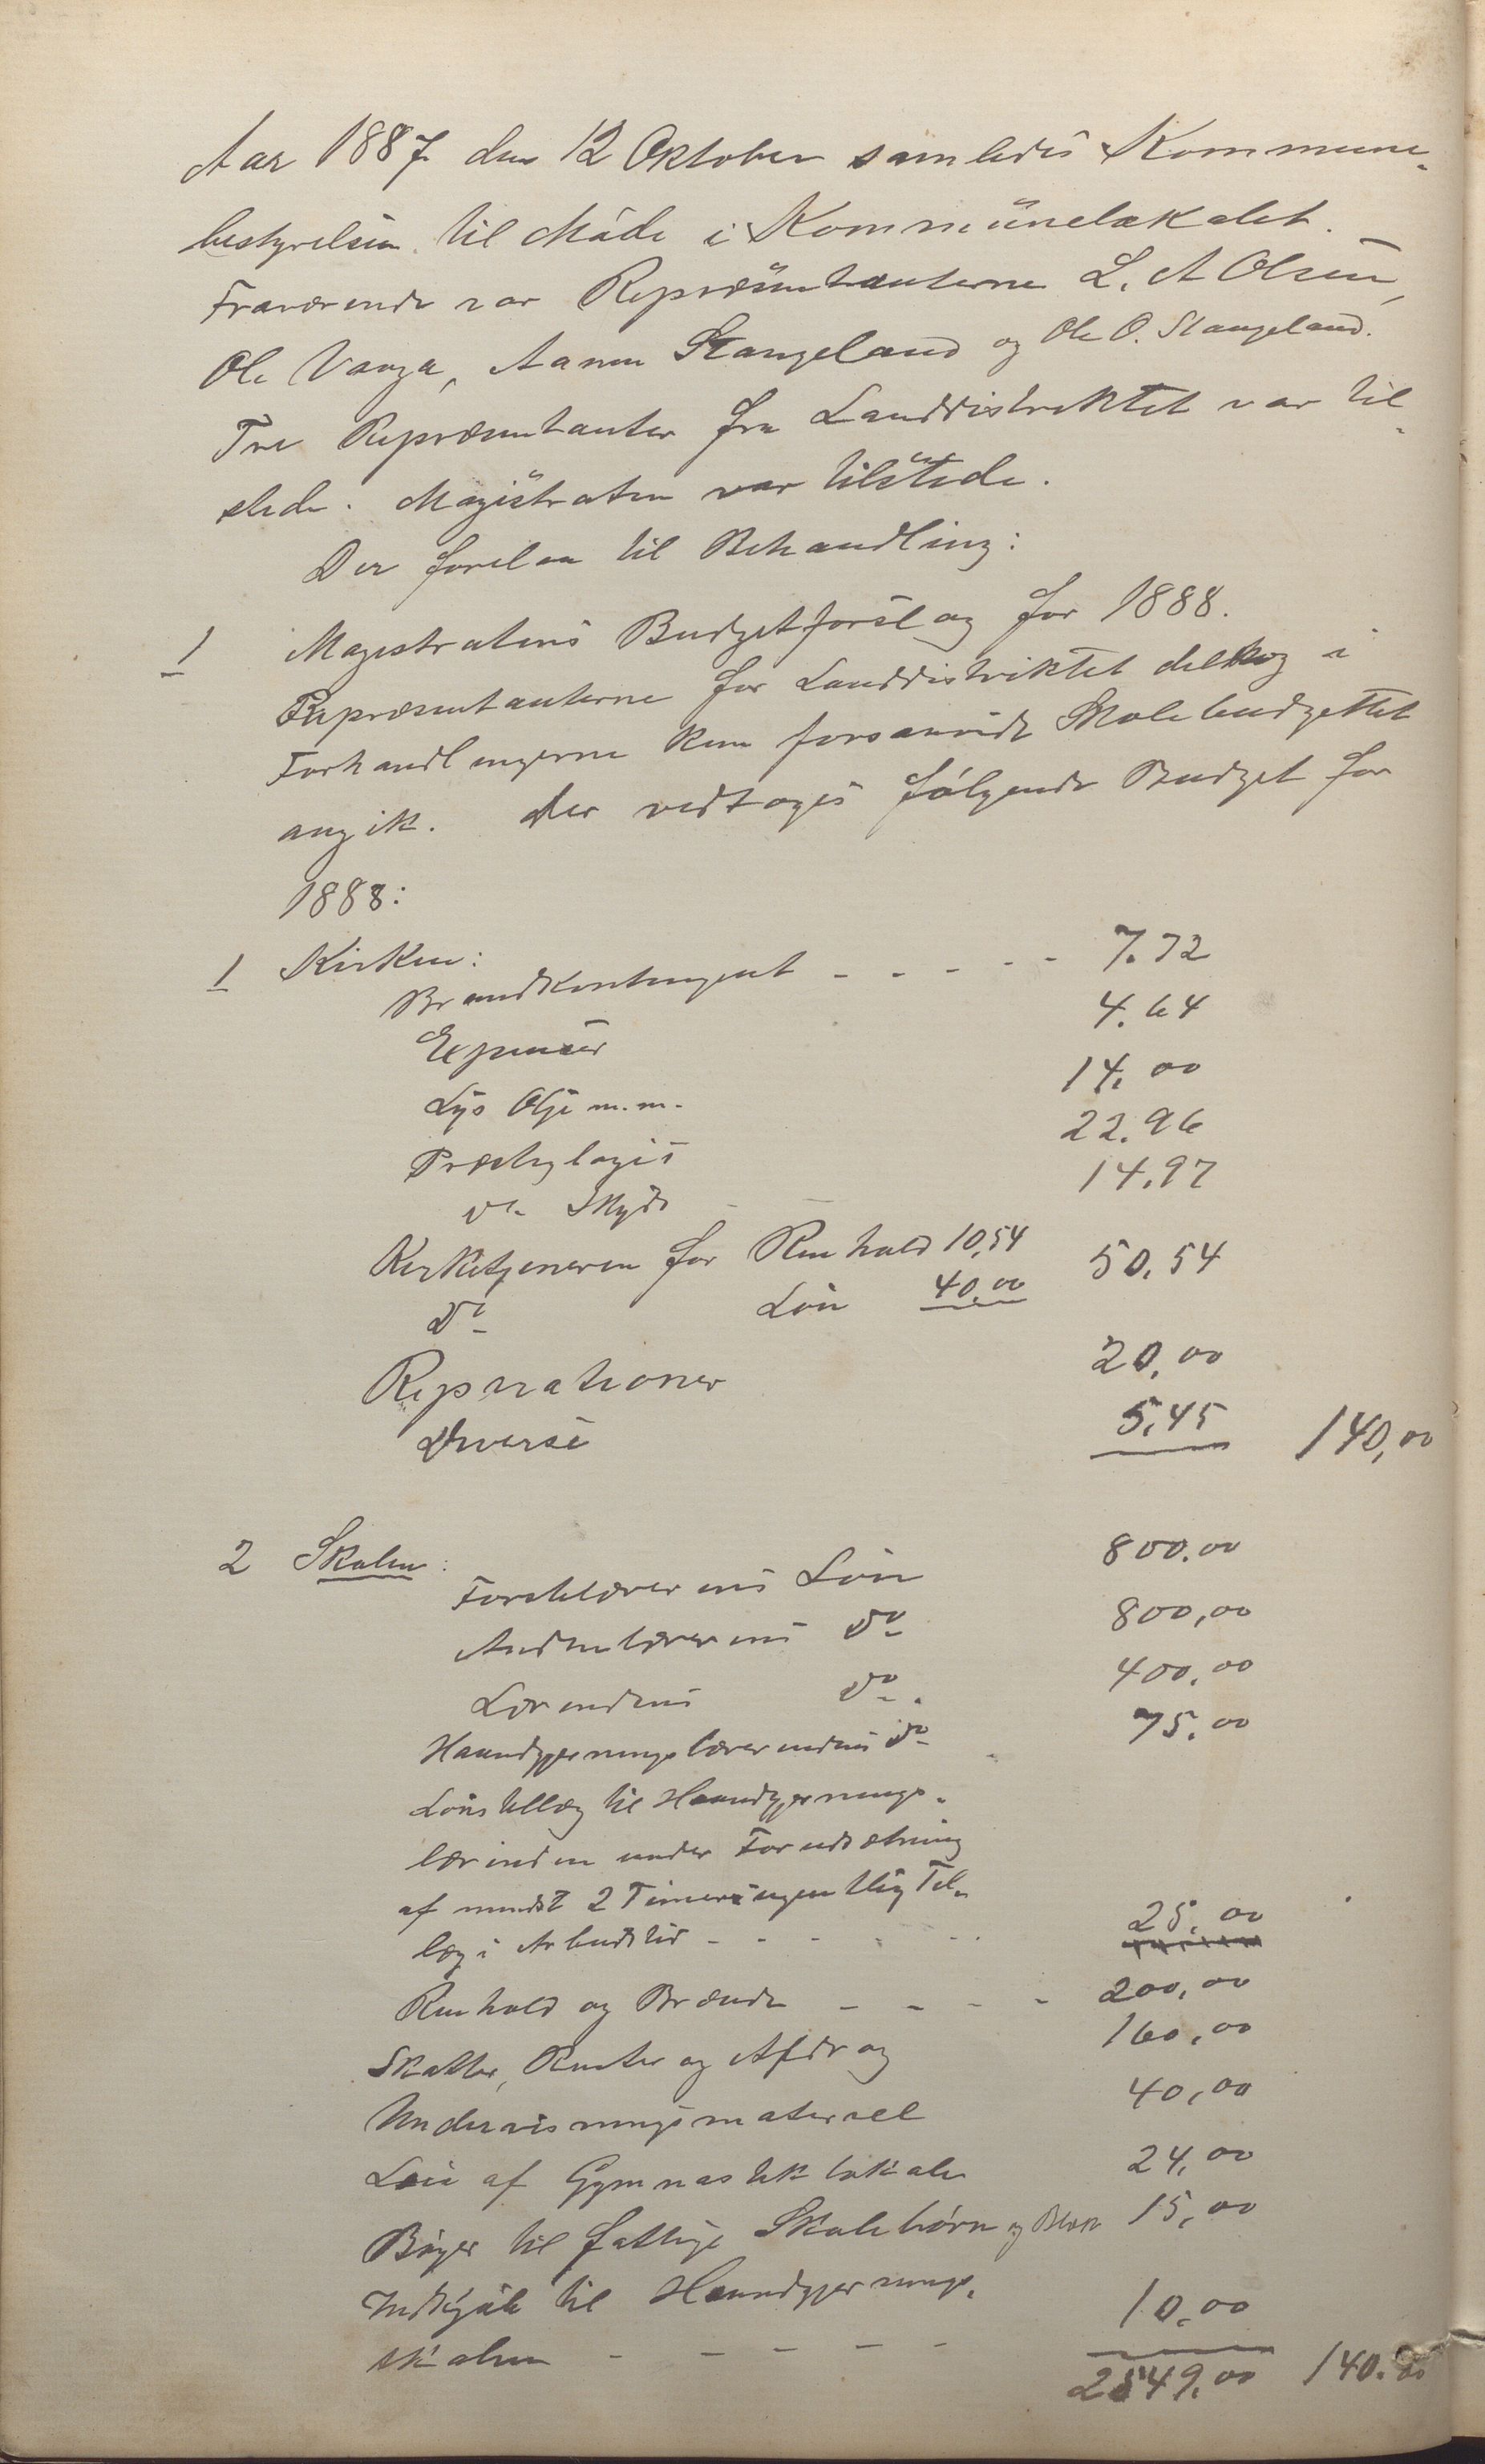 Aar 1887 den 12 Oktober samledes Kommune-
bestyrelsen til Møde i Kommunelokalet.
Fraværende var Repræsentanterne L. A Olsen,
Ole Vaaga, Aanen Stangeland og Ole O. Stangeland.
Tre Repræsentanter fra Landdistriktet var til-
stede. Magistraten var tilstede.
Der forelaa til Behandling:
1 Magistratens Budgetforslag for 1888.
Repræsentanterne for Landdistriktet deltog i
Forhandlingerne kun forsaavidt Skolebudgettet
angik. Der vedtoges følgende Budget for
1888:
1 Kirken:
Brandkontingent - - - - - 7.72
Expenser 4.64
Lys Olje m.m. 14,00
Præstens logis 22.96
do Skyds 14.97
Kirketjeneren for Renhold 10,54
do Løn 40,00 50,54
Reparationer 20,00
Diverse 5,45 140,00
2 Skolen:
Førstelærerens Løn 800.00
Andenlærerens do 800,00
Lærerindens do. 400.00
Haandgjerningslærerindens do 75.00
Lønstillæg til Haandgjernings-
lærinden under Forudsætning
af mindst 2 Timers ugentlig Til-
læg i Arbeidstid - - - - - 25.00
Renhold og Brænde - - - - 200,00
Skatter, Renter og Afdrag 160,00
Undervisningsmateriel 40,00
Leie af Gymnastiklokale 24,00
Bøger til fattige Skolebørn og Blæk 15,00
Indkjøb til Haandgjernings-
skolen - - - - - 10.00
2549,00 140.00